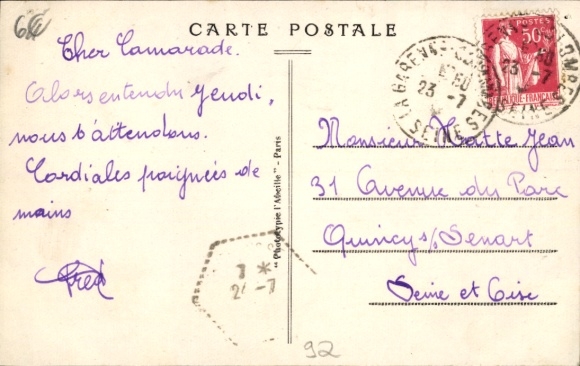 64
CARTE POSTALE
Cher Camarade.
Alors entendu jeudi,
nous t'attendons.
Cordiales poignées de
mains
Fred
"Phototypie l'Abeille" - Paris
POSTES
50c
RÉPUBLIQUE FRANÇAISE
LA GARENNE-COLOMBES
23 -7
SEINE
Monsieur Hatte Jean
31 Avenue du Parc
Quincy s/s Senart
Seine et Oise
7 *
24-7
92